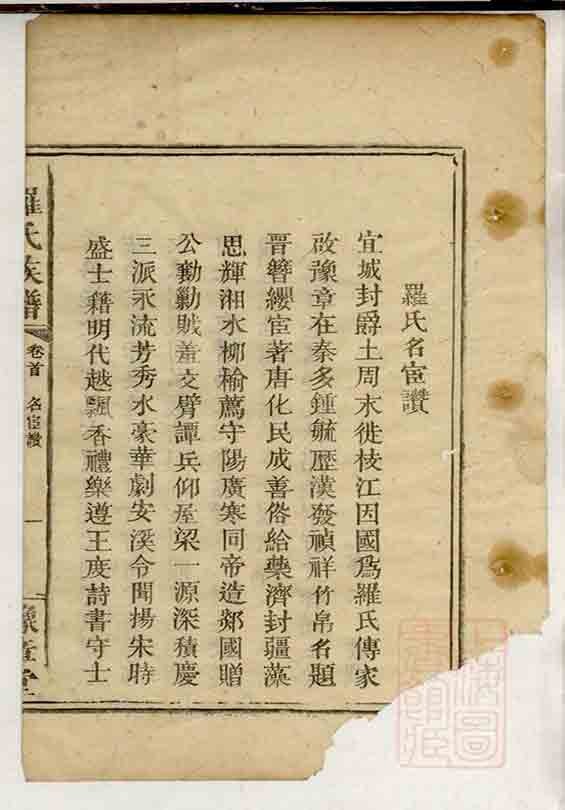 羅氏名宦讚
宜城封爵土周末徙枝江因國爲羅氏傳家
啟豫章在秦多鍾毓歷漢發禎祥竹帛名題
晉簪纓宦著唐化民成善俗給藥濟封疆藻
思輝湘水柳榆薦守陽廣寒同帝造鄰國贈
公勤勦賊羞交臂譚兵仰屋梁一源深積慶
三派永流芳秀水豪華劇安溪令聞揚宋時
盛士藉明代越飄香禮樂遵王度詩書守士
羅氏族譜
卷首
名宦讚
豫章堂